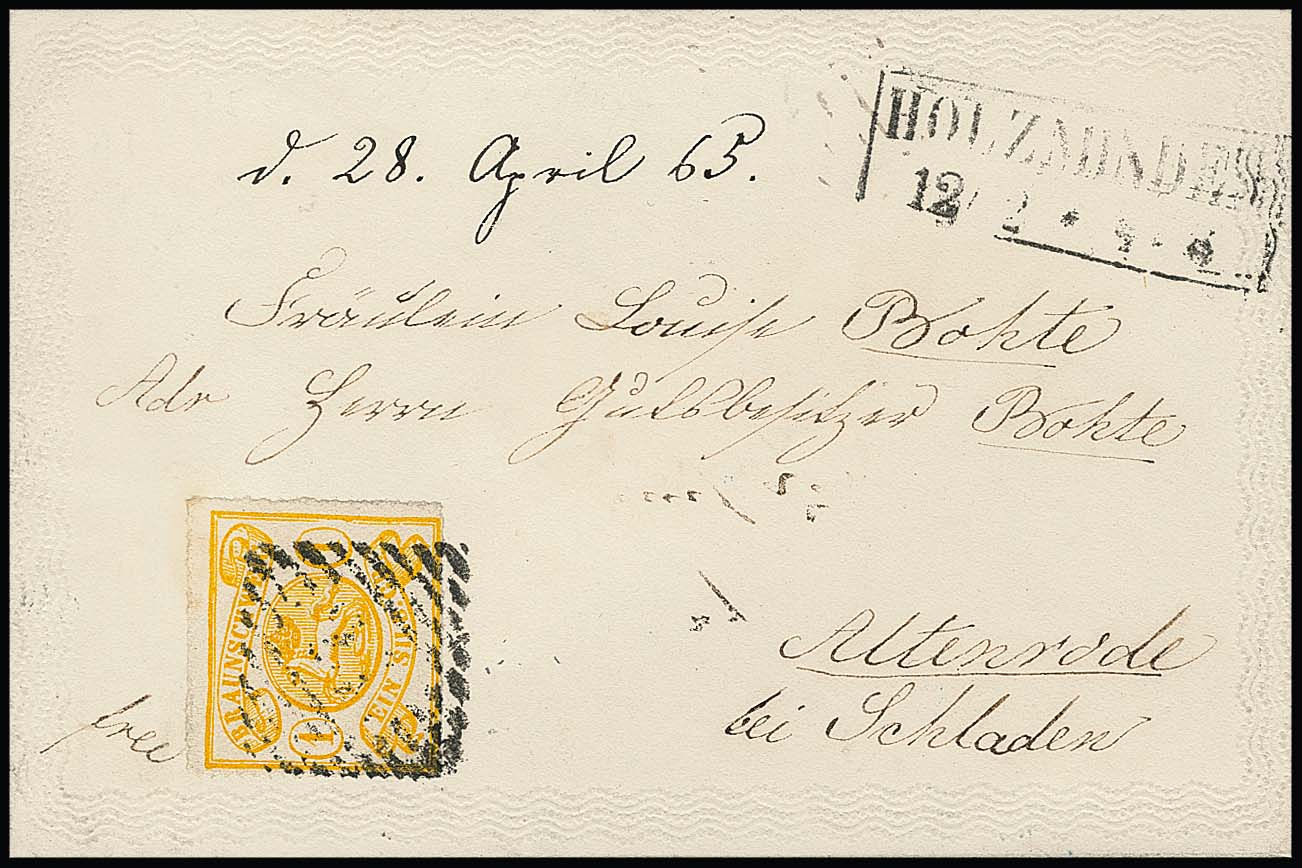 d. 28. April 65.
HOLZMINDEN
12
Fräulein Louise Bohte
Adr Herrn Gutsbesitzer Bohte
BRAUNSCHWEIG
EIN SILB. GR.
1
free
Altenrode
bei Schladen